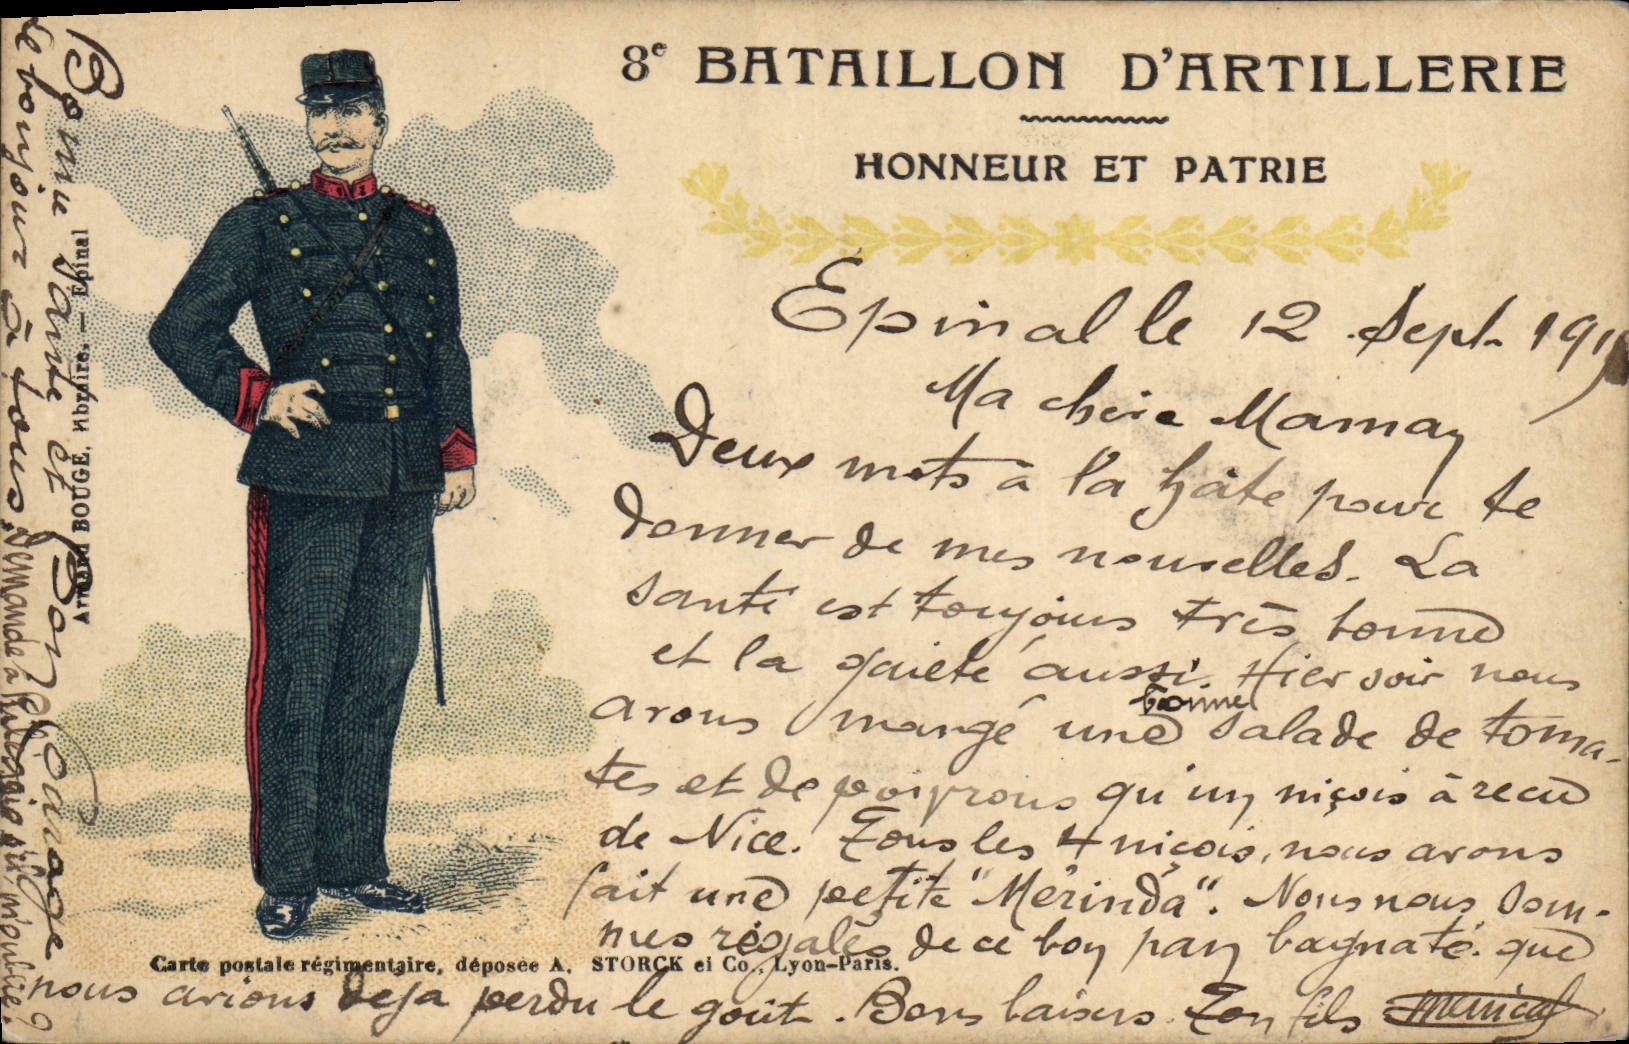 8e BATAILLON D'ARTILLERIE
HONNEUR ET PATRIE
Epinal le 12 Sept. 191
Ma chère Maman
Deux mots à la hâte pour te
donner de mes nouvelles. La
santé est toujours très bonne
et la gaieté aussi. Hier soir nous
avons mangé une bonne salade de toma-
tes et de poivrons qu'un niçois à reçu
de Nice. Tous les 4 niçois, nous avons
fait une petite "Mérinda". Nous nous som-
mes régalés de ce bon pan bagnate que
nous avions deja perdu le goût. Bons baisers. Ton fils
Carte postale régimentaire, déposée A. STORCK et Co., Lyon-Paris.
Armand BOUGÉ, libraire. — Épinal
Bonne Santé et Bon Courage
Le bonjour à tous. Demande à